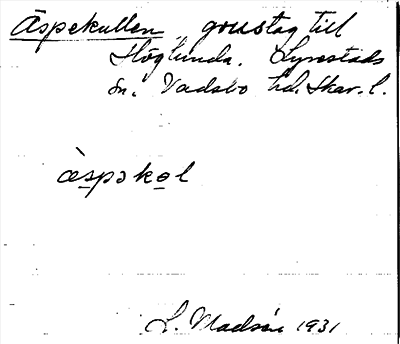 Äspekullen, gonstag till
Höglunda. Lyrestads
sn. Vadsbo hd. Skar. l.
æ̀spəkol
L. Madsén 1931